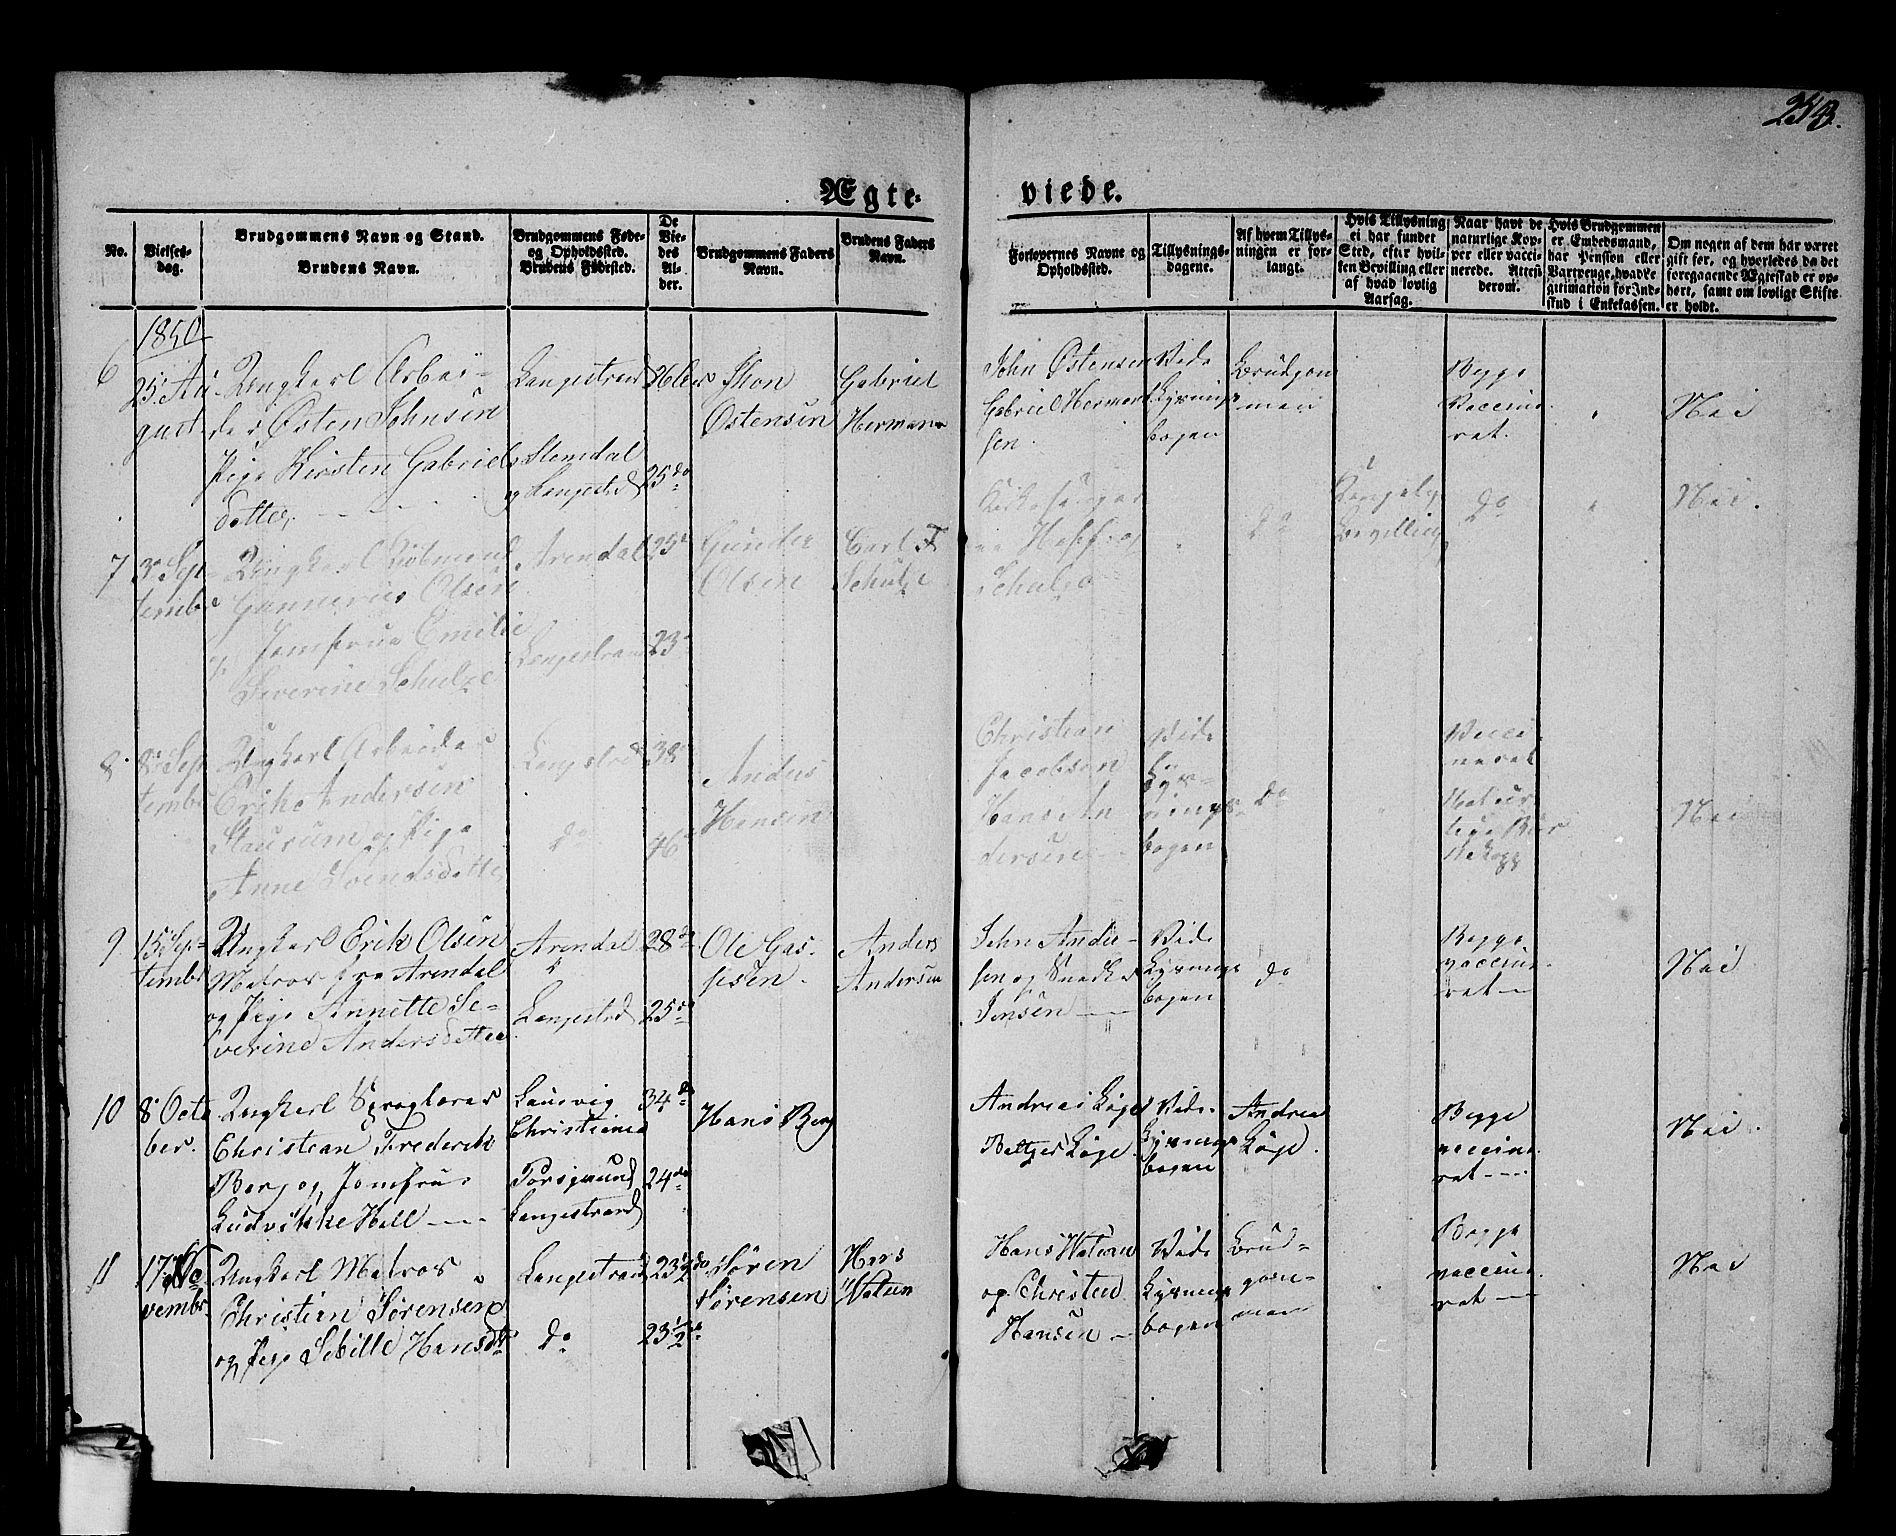 253.
Ægte-
viede.
No.
Vielses-
dag.
Brudgommens Navn og Stand.
Brudens Navn.
Brudgommens Føde-
og Opholdssted.
Brudens Fødested.
De
Vie-
des
Al-
der.
Brudgommens Faders
Navn.
Brudens Faders
Navn.
Forlovernes Navne og
Opholdssted.
Tillysnings-
dagene.
Af hvem Tillys-
ningen er for-
langt.
Hvis Tillysning
ei har fundet
Sted, efter hvil-
ken Bevilling eller
af hvad lovlig
Aarsag.
Naar havt de
naturlige Kop-
per eller vacci-
nerede. Attest
derom.
Hvis Brudgommen
er Embedsmand,
har Pension eller
Vartpenge, hvad Le-
gitimation for Ind-
skud i Enkekassen.
Om nogen af dem har været
gift før, og hvorledes da det
foregaaende Ægteskab er op-
hørt, samt om lovligt Skifte
er holdt.
1850
6
25 Au-
gust
Ungkarl Arbei-
der Østen Johnsen
Pige Kirsten Gabriels
datter
Langestrand
Stemdal
og Langestrd
26
25 do
Jhon
Østensen
Gabriel
Herman
John Østensen
Gabriel Herman
sen
Vide
Lysnings
bogen
Brudgom
men
Begge
Vaccine
ret.
Nei
7
3 Sep-
tembr
Ungkarl Kiøbmand
Gunnerius Olsen
Jomfrue Emilie
Severine Schulze
Arendal
Langestrand
25
23
Gunder
Olsen
Carl F.
Schulze
Kirkesanger
Schulze
do
Kongelig
Bevilling
do
Nei.
8
8 Sep
tembr
Ungkarl Arbeider
Erik Andersen
Staurum og Pige
Anne Svendsdatter
Langestrd
do
38
46
Anders
Hansen
Christian
Jacobsen
Hans An
dersen
Vide
Lys-
nings-
bogen
do
Vacci-
neret
Natur
Nei
9
15 Sep-
tembr
Ungkarl Erik Olsen
Matros fra Arendal
og Pige Annette Se-
verine Andersdatter
Arendal
Langestrd
28 do
25 do
Ole Gas-
sen
Anders
Andersen
John Ander-
sen og Snedker
Jensen
Vide
Lysnings
bogen
do
Begge
vaccine
ret
Nei
10
8 Octo
ber.
Ungkarl Sproglærer
Christian Frederik
Berg og Jomfru
Ludvikke Hell
Laurvig
Christiania
Porsgrund
Langestrand
34 do
24 do
Hans Berg
Andreas Løge
Løge
Vide
Lysnings
bogen
Andreas
Løge.
Begge
vaccine
ret
Nei.
11
17 No
vembr
Ungkarl Matros
Christian Sørensen
og Pige Sebille Hansdtr
Langestrand
do
23½ do
23½
Søren
Sørensen
Hans
Watum
Hans Watum
og Christen
Hansen
Vide
Lysnings
bogen
Brud-
gom-
men
Begge
vaccine
ret
Nei